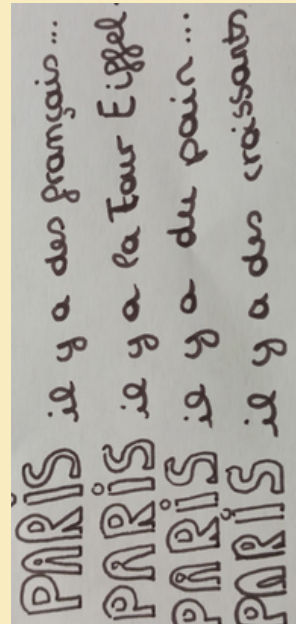 PARIS il y a des français...
PARIS il y a la Tour Eiffel.
PARIS il y a du pain...
PARIS il y a des croissants